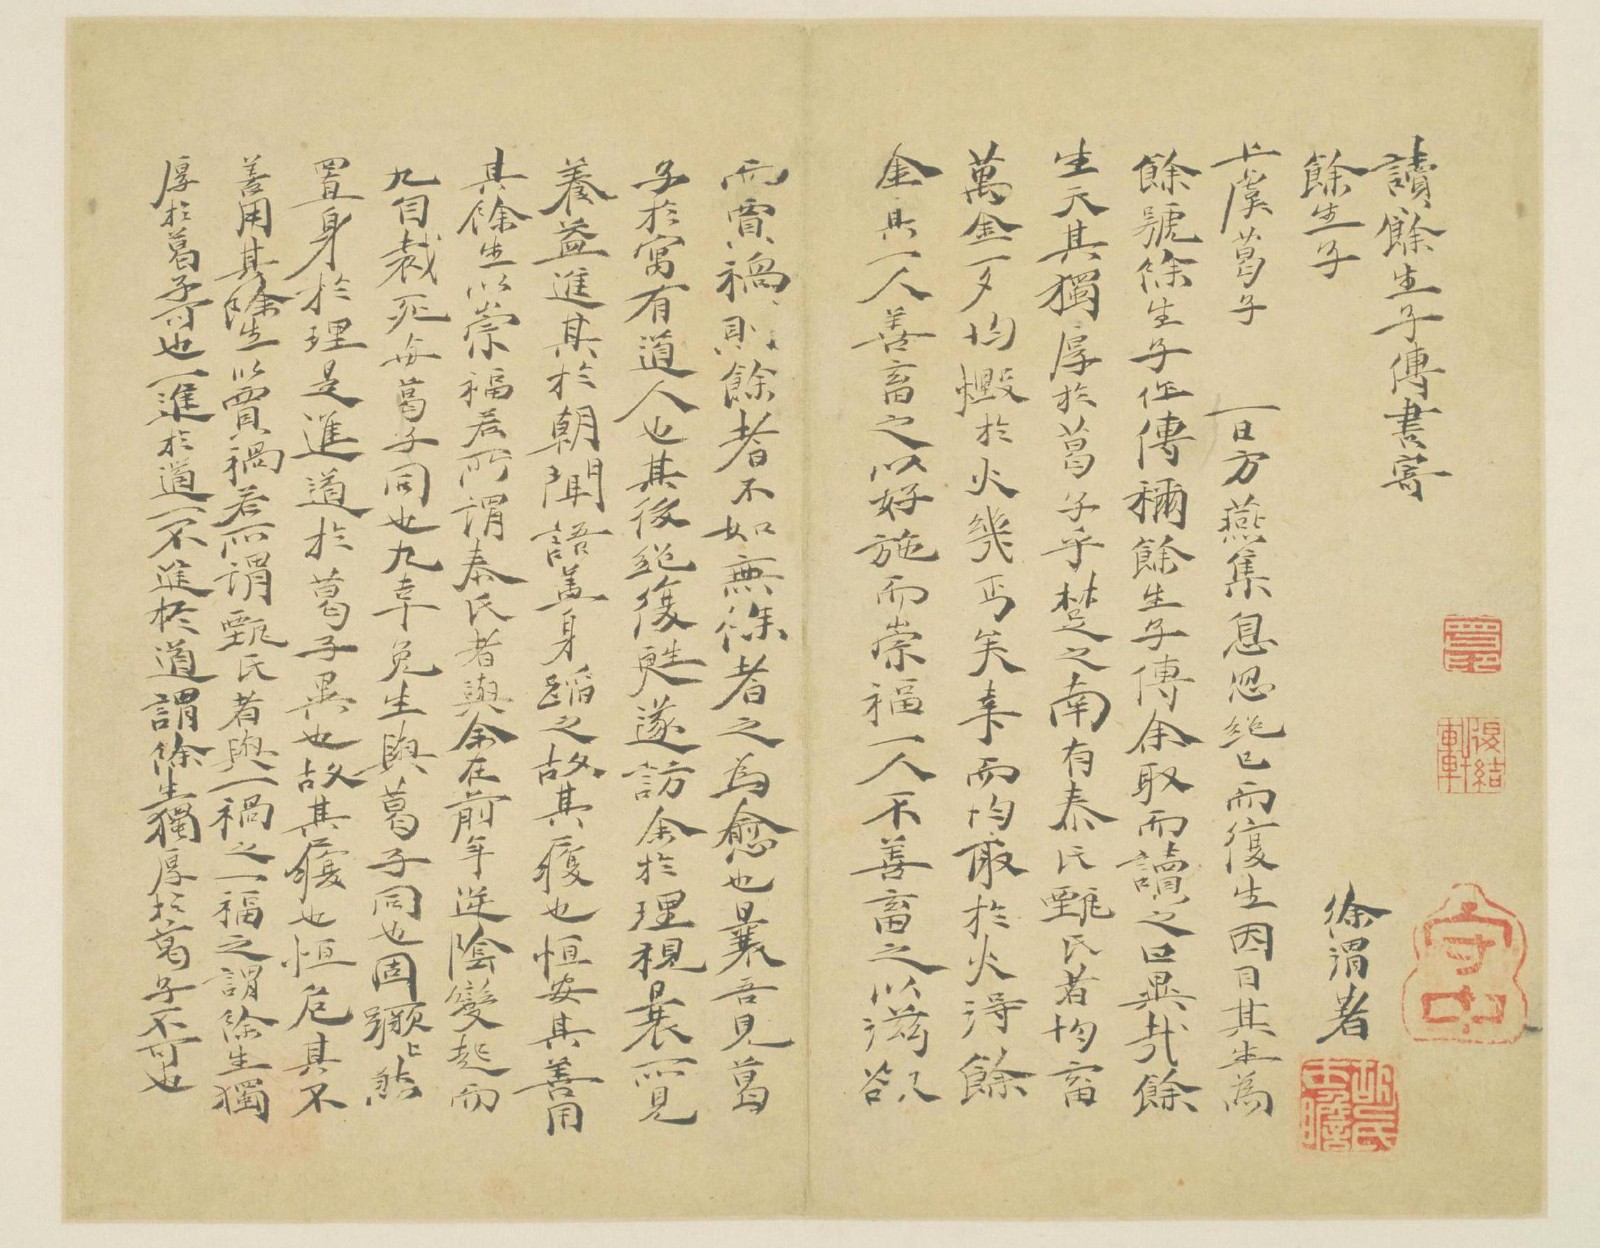 讀餘生子傳書寄
餘生子
徐渭著
上虞葛子 一日方燕集息忽絕已而復生因目其生為
餘號餘生子作傳稱餘生子傳余取而讀之曰異哉餘
生天其獨厚於葛子乎楚之南有秦氏甄氏者均畜
萬金一夕均燬於火幾丐矣幸而均取於火得餘
金其一人善畜之以好施而崇福一人不善畜之以滋欲
而賈禍則餘者不如無餘者之為愈也曩吾見葛
子於寓有道人也其後絕復甦遂訪余於理視曩所見
養益進其於朝聞語蓋身蹈之故其履也恒安其善用
其餘生以崇福若所謂秦氏者與余在前年逆陰變起而
九自裁死與葛子同也九幸免生與葛子同也固顛上然
置身於理是進道於葛子異也故其履也恒危其不
善用其餘生以賈禍若所謂甄氏者與一禍之一福之謂餘生獨
厚於葛子可也一進於道一不進於道謂餘生獨厚於葛子不可也
守中